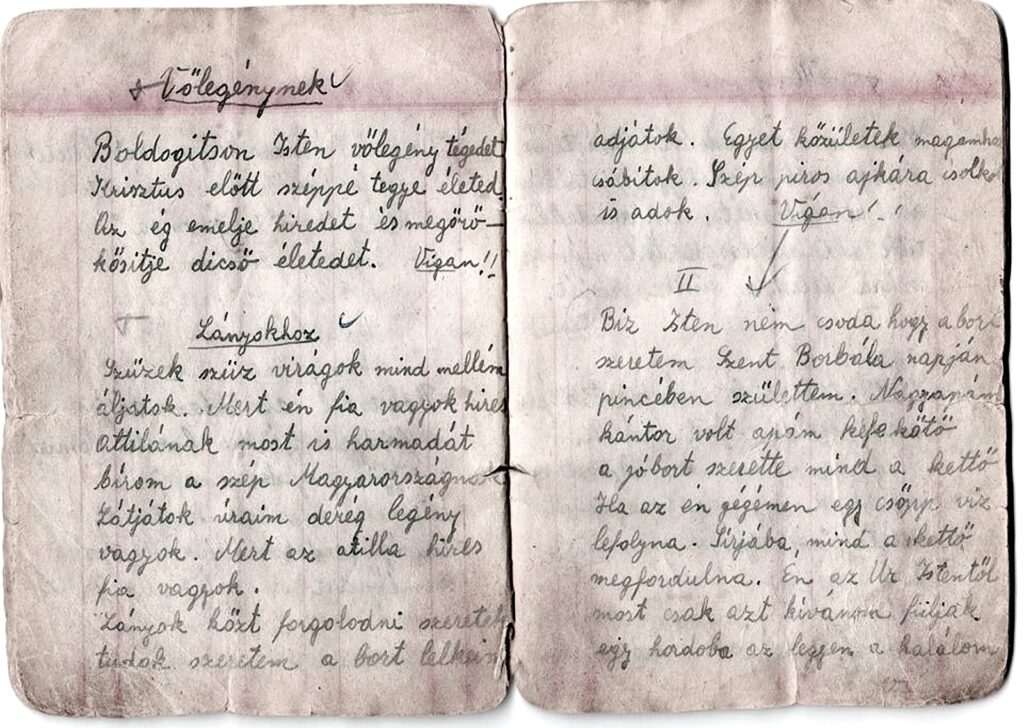 Vőlegénynek
Boldogitson Isten vőlegény tégedet
Krisztus előtt széppé tegye életed
Az ég emelje hiredet es megörö-
kősitje dicső életedet. Vigan!!
Lányokhoz
Szüzek szüz virágok mind mellém
áljatok. Mert én fia vagyok hires
Attilának most is harmadát
birom a szép Magyarországnak
Látjátok úraim derég legény
vagyok. Mert az atilla hires
fia vagyok.
Lányok közt forgolodni szeretek
tudok szeretem a bort lelkeim
adjátok. Egyet közületek magamhoz
csábitok. Szép piros ajkára csolkot
is adok. Vigan!!
II
Biz Isten nem csoda hogy a bort
szeretem Szent Borbála napján
pincében születtem. Nagyapám
kántor volt apám kefe kötő
a jóbort szerette mind a kettő
Ha az én gégémen egy csöpp viz
lefolyna. Sirjába, mind a kettő
megfordulna. En az Ur Istentől
most csak azt kivánom fúljak
egy hordoba az legyen a halálom